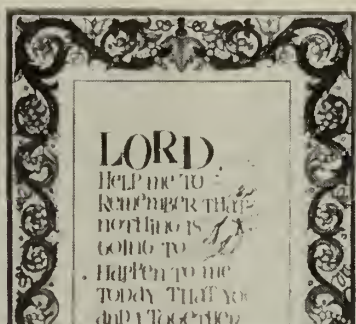 LORD
HELP me TO
REMEMBER THAT
NOTHING IS
GOING TO
HAPPEN TO me
TODAY THAT YOU
AND I TOGETHER